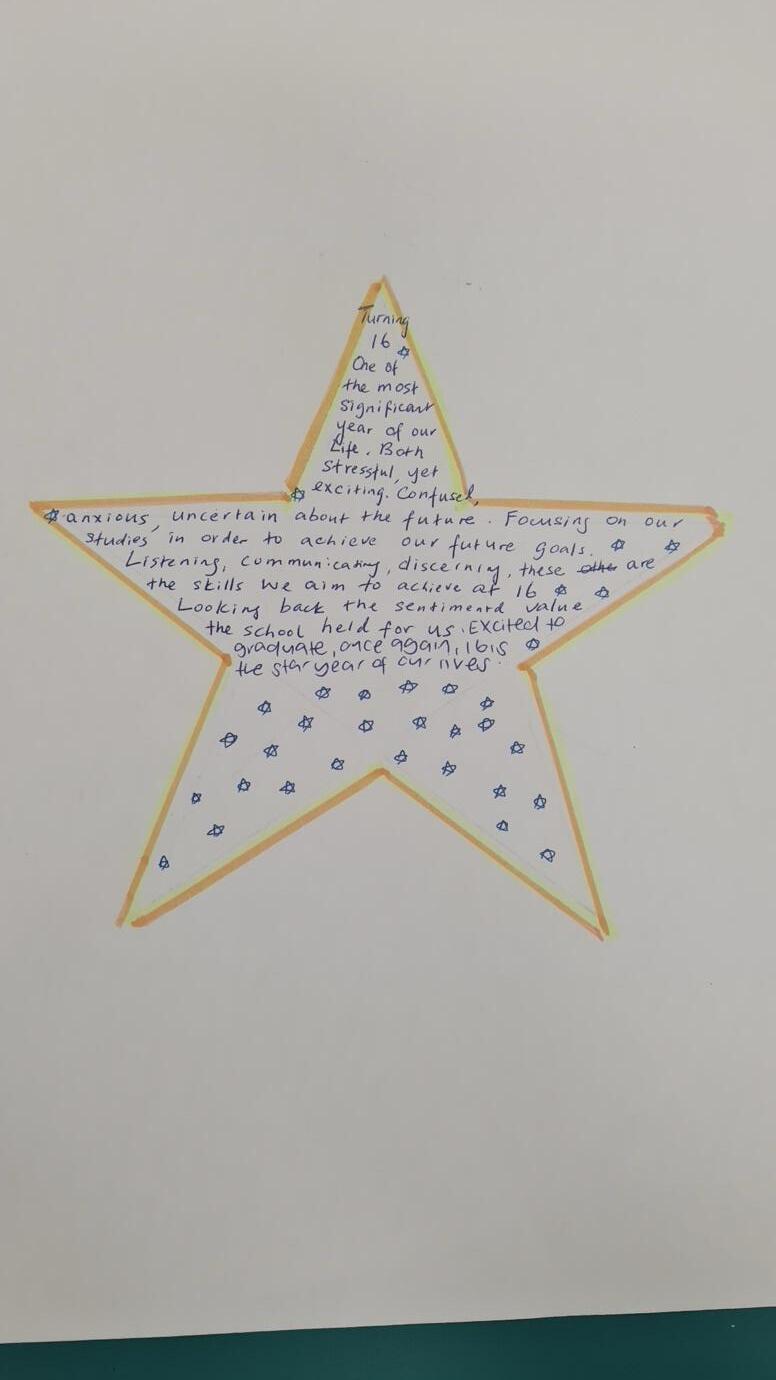 Turning
16
One of
the most
significant
year of our
Life. Both
stressful, yet
exciting. Confused,
anxious, uncertain about the future. Focusing on our
studies in order to achieve our future goals.
Listening, communicating, discerning, these are
the skills we aim to achieve at 16
Looking back the sentimental value
the school held for us. Excited to
graduate, once again, 16 is
the star year of our lives.